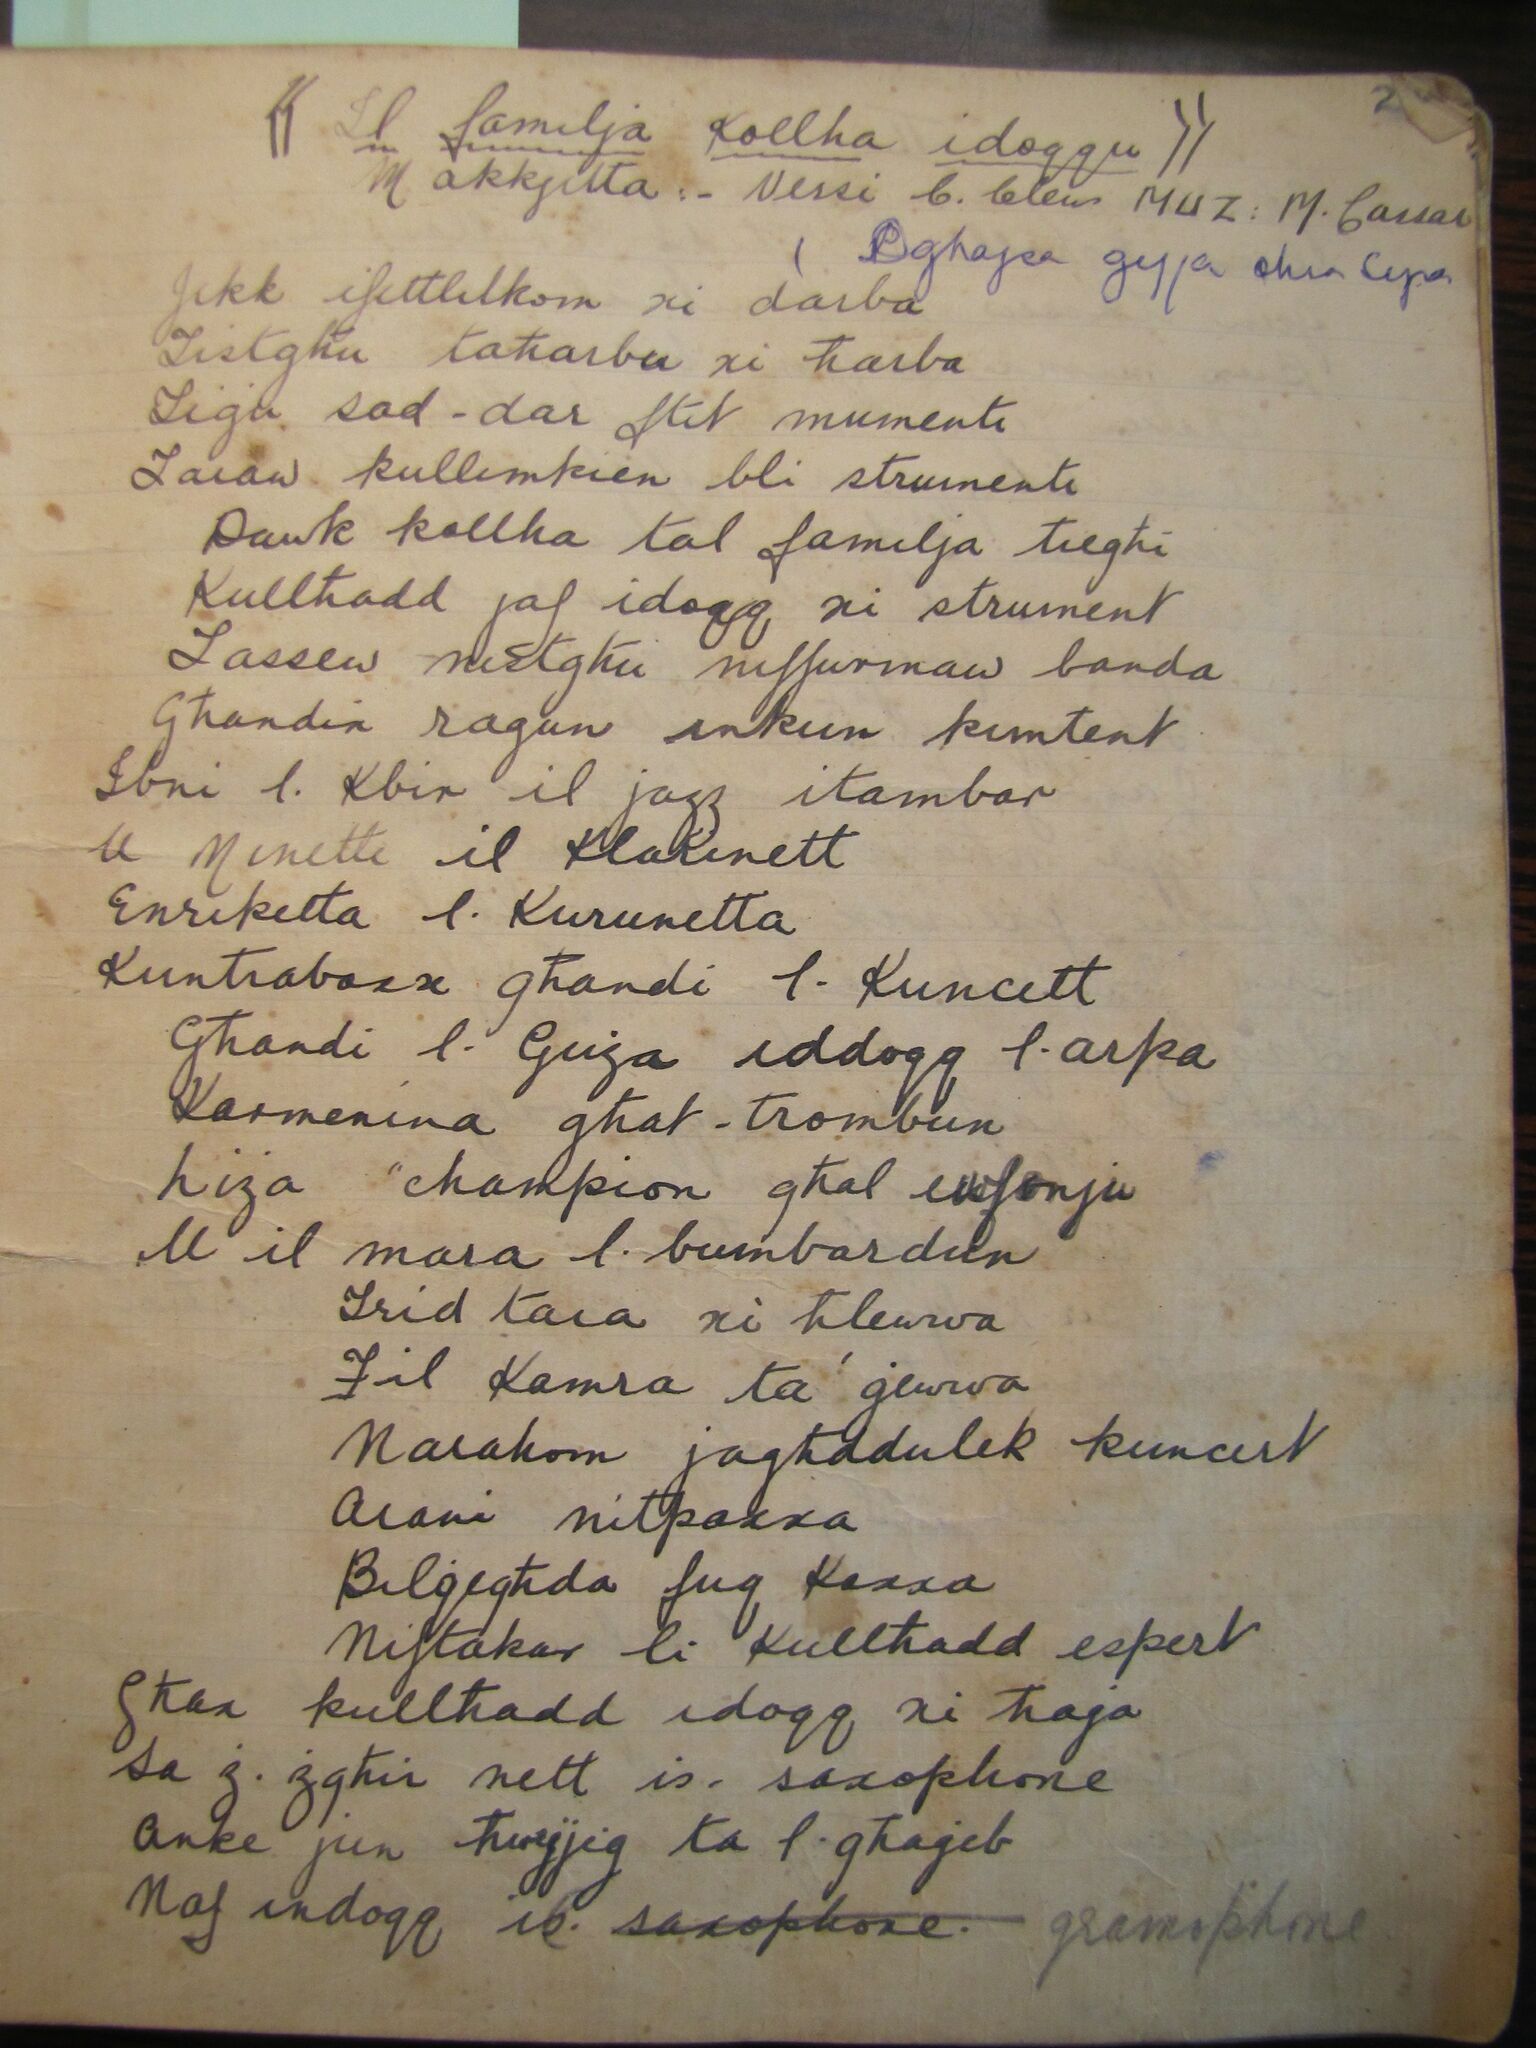 2
" Il familja kollha idoqqu "
Makkjetta :- Versi C. Clews MUZ: M. Cassar
( gejja ohra
Jekk ifettlilkom xi darba
Tistghu taħarbu xi ħarba
Tiġu sad-dar ftit mumenti
Taraw kullimkien bli strumenti
Dawk kollha tal familja tieghi
Kullħadd jaf idoqq xi strument
Lassew nistgħu niffurmaw banda
Għandix ragun inkun kuntent
Ibni l. Kbir il jazz itambar
U Ninetti il Klarinett
Enriketta l. Kurunetta
Kuntrabaxx għandi l- Kuncett
Għandi l- Ġuża iddoqq l-arpa
Karmenina għat-trombun
Liża "champion għal eufonju
U il mara l. bumbardun
Trid tara xi ħlewwa
Fil Kamra ta' ġewwa
Narahom jagħddulek kuncert
Arani nitpaxxa
Bilġegħda fuq Kaxxa
Niftakar li Kullħadd espert
Għax kullħadd idoqq xi ħaġa
Sa ż. żgħir nett is- saxophone
Anke jien ħwejjiġ ta l-għajeb
Naf indoqq is. saxophone. gramophone